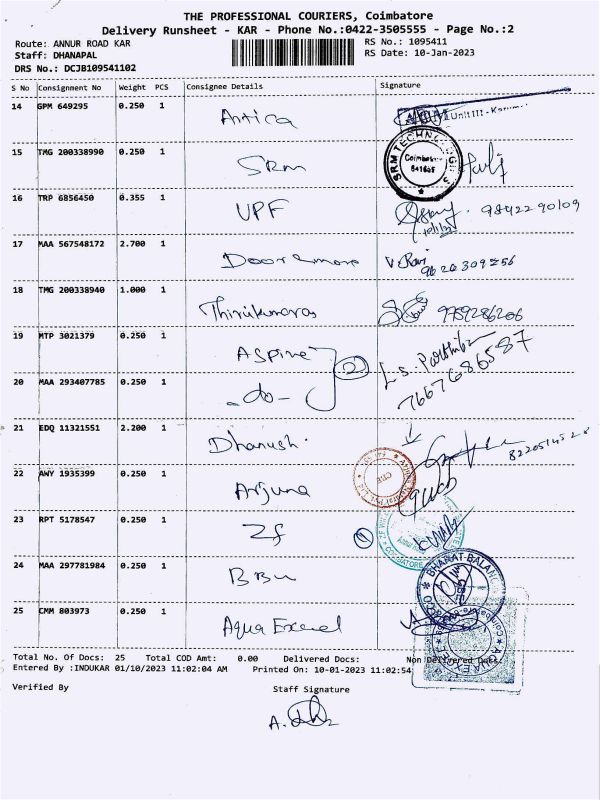 THE PROFESSIONAL COURIERS, Coimbatore
Delivery Runsheet - KAR - Phone No.:0422-3505555 - Page No.:2
Route: ANNUR ROAD KAR
RS No.: 1095411
Staff: DHANAPAL
RS Date: 10-Jan-2023
DRS No.: DCJB109541102
S No Consignment No Weight PCS Consignee Details Signature
14 GPM 649295 0.250 1 Antica Unit III - Karumu
15 TMG 200338990 0.250 1 SRM SRM TECHNOLOGIES Coimbatore 641605
16 TRP 6856450 0.355 1 UPF 9842290109
17 MAA 567548172 2.700 1 Door &more V. Ravi 9620309256
18 TMG 200338940 1.000 1 Thirukumaras 9789286206
19 MTP 3021379 0.250 1 Aspire 2 L.S. Parthiba
20 MAA 293407785 0.250 1 -do- 7667686587
21 EDQ 11321551 2.200 1 Dhanush
22 AWY 1935399 0.250 1 Arjuna
23 RPT 5178547 0.250 1 Zf COIMBATORE
24 MAA 297781984 0.250 1 BBU BHARAT BALAN
25 CMM 803973 0.250 1 Aqua Excel
Total No. Of Docs: 25 Total COD Amt: 0.00 Delivered Docs: Non Delivered Docs:
Entered By :INDUKAR 01/10/2023 11:02:04 AM Printed On: 10-01-2023 11:02:54
Verified By Staff Signature